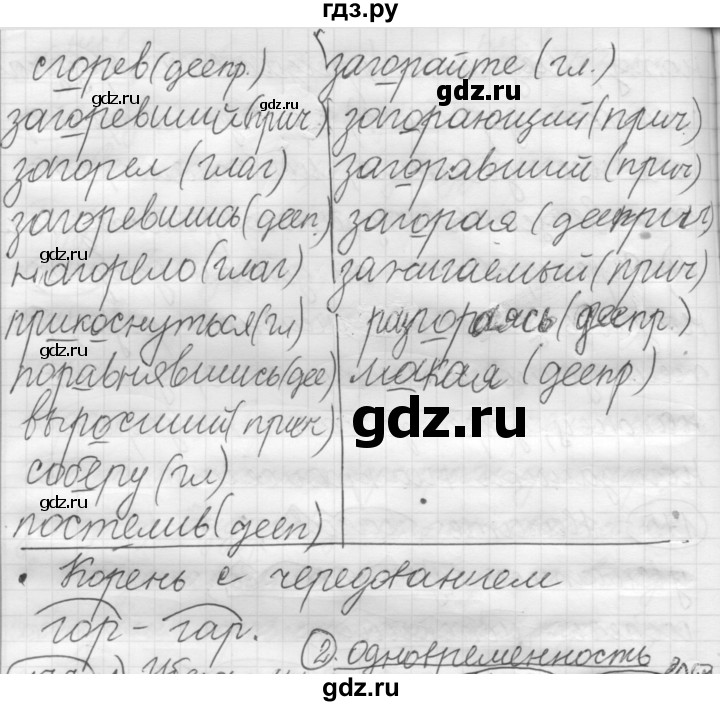 гдз.ру
сгорев (деепр.)
загорайте (гл.)
gdz.ru
gdz.ru
gdz.ru
загоревший (прич)
загорающий (прич)
загорел (глаг)
загоравший (прич)
загоревшись (дееп.)
загорая (дееприч)
gdz.ru
нагорело (глаг)
зажигаемый (прич)
прикоснуться (гл)
разгораясь (деепр.)
gdz.ru
поравнявшись (дее)
макая (деепр.)
gdz.ru
выросший (прич)
соберу (гл)
gdz.ru
постелив (дееп)
Корень с чередованием
гор - гар.
2. одновременность
gdz.ru